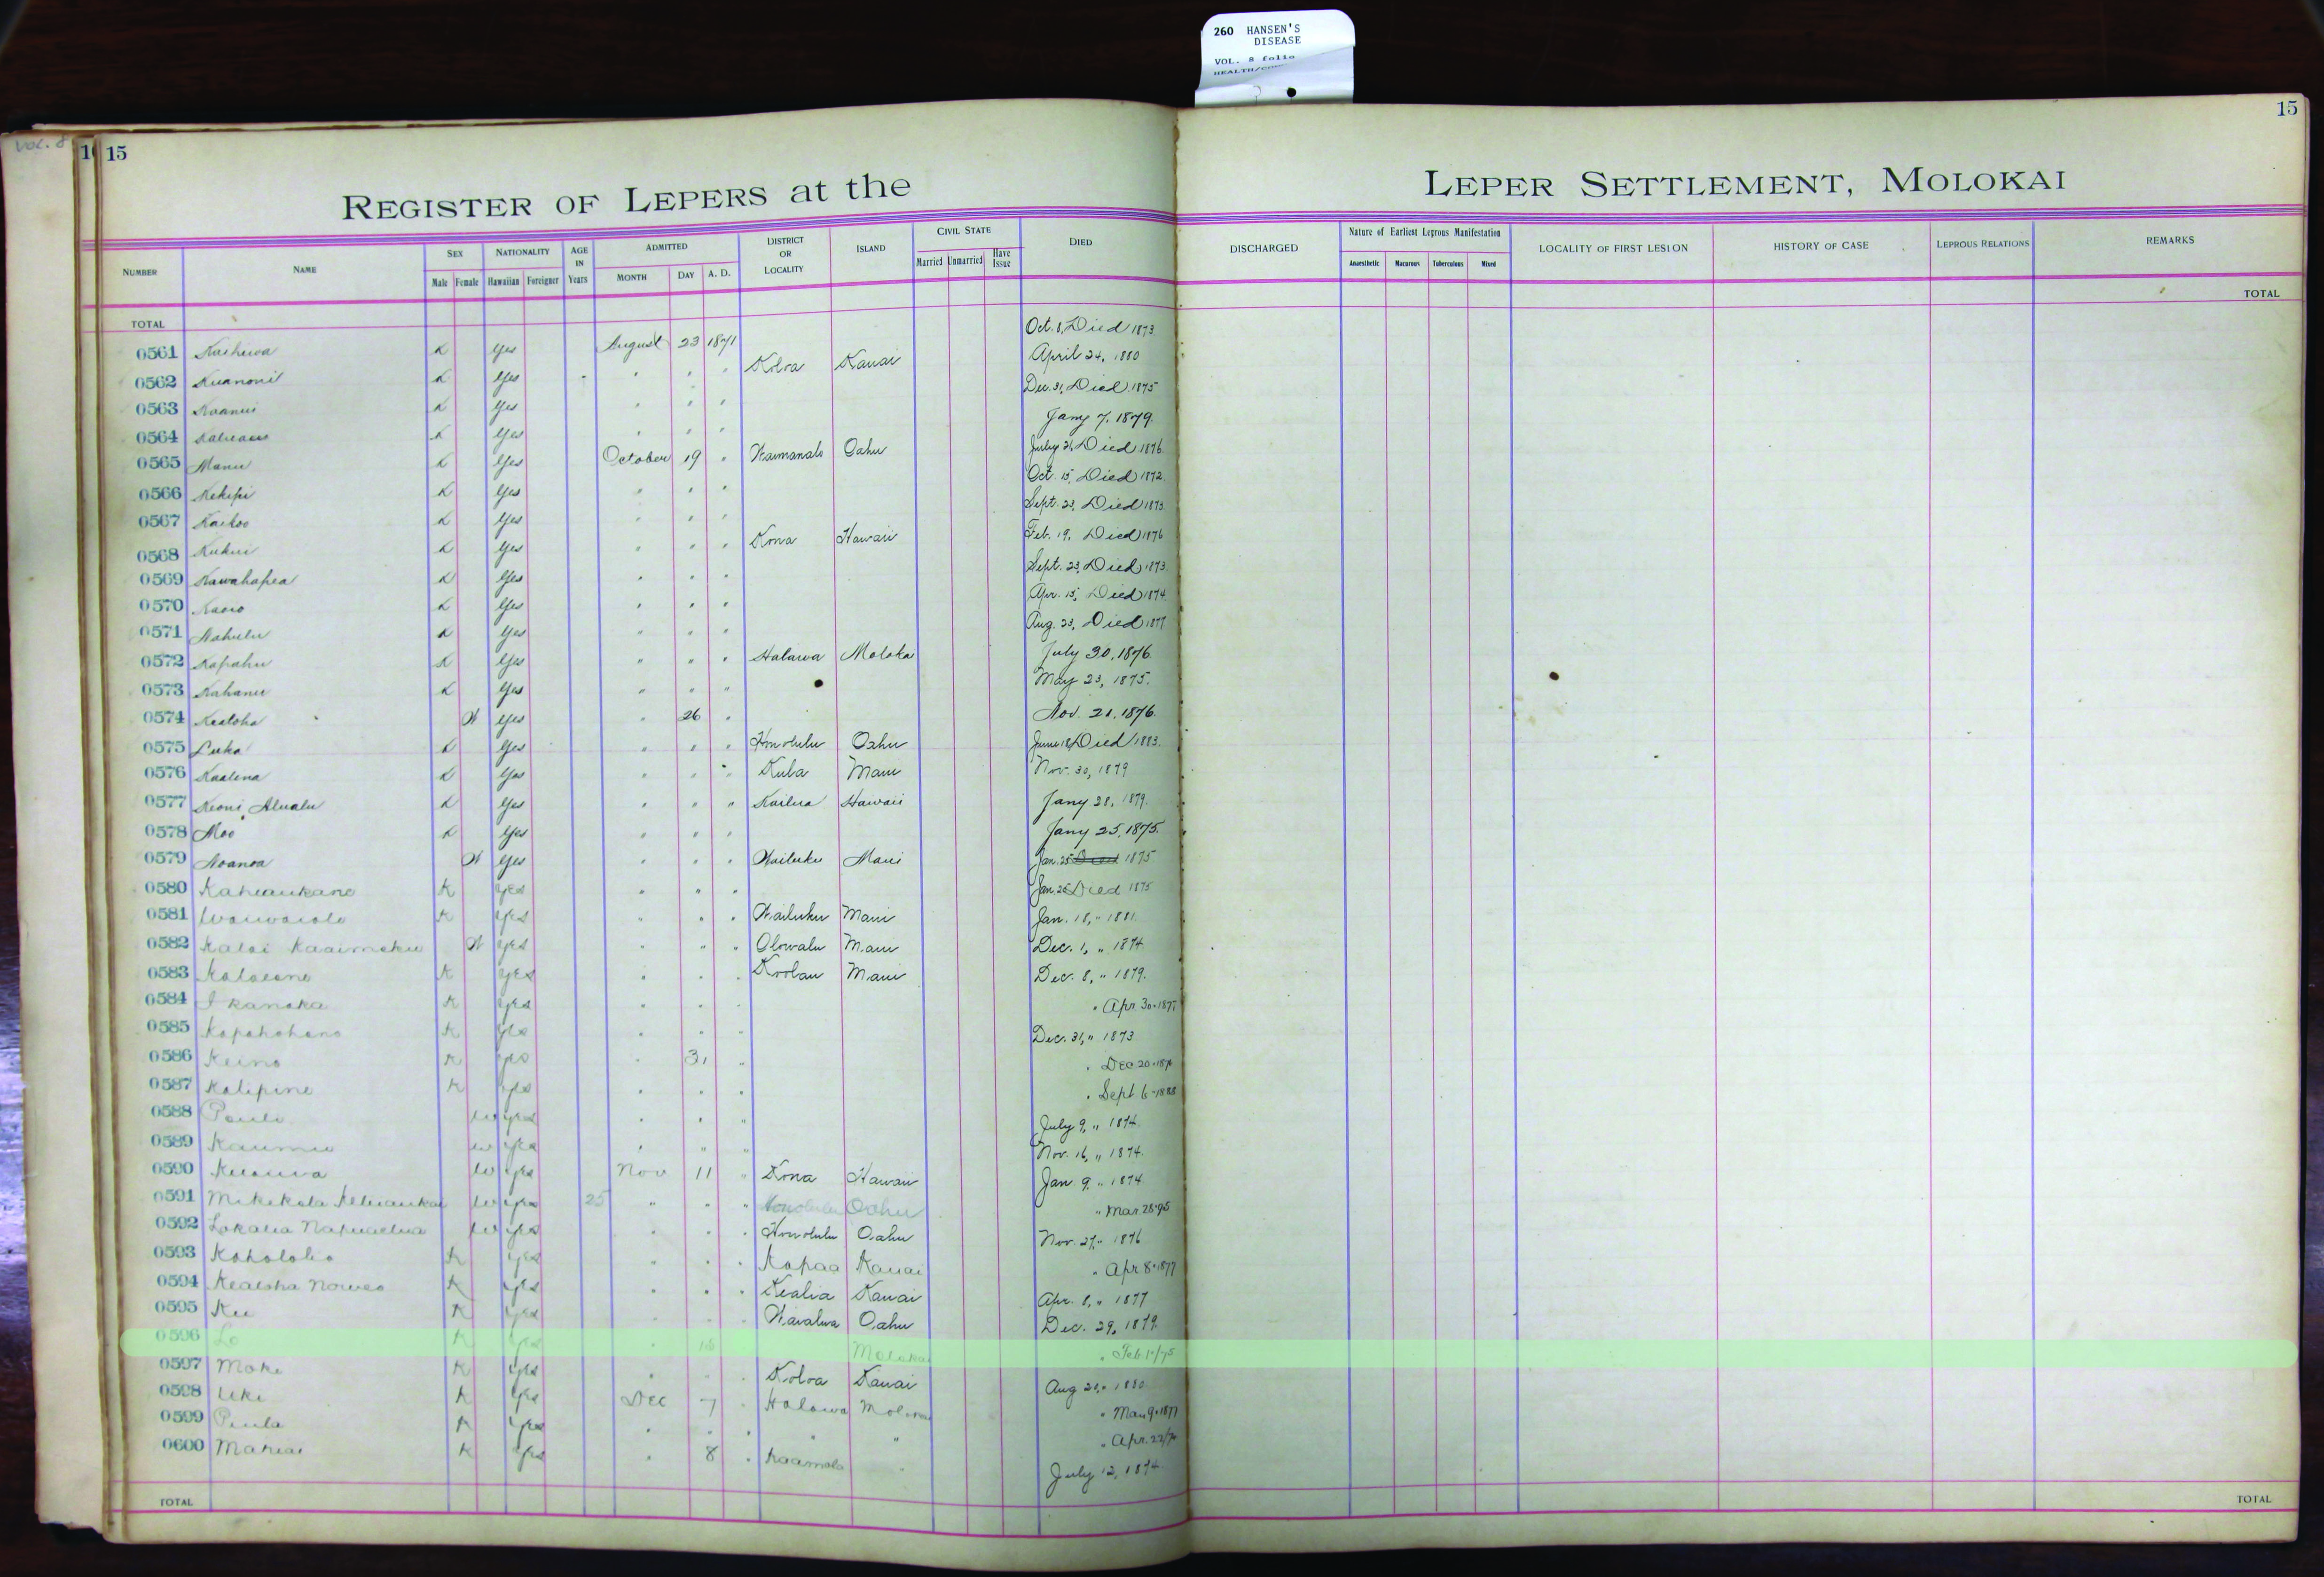 260 HANSEN'S
DISEASE
VOL. 8 folio
VOL. 8
15
15
REGISTER OF LEPERS at the LEPER SETTLEMENT, MOLOKAI
NUMBER NAME SEX Male Female NATIONALITY Hawaiian Foreigner AGE IN Years ADMITTED MONTH DAY A. D. DISTRICT OR LOCALITY ISLAND CIVIL STATE Married Unmarried Have Issue DIED
DISCHARGED Nature of Earliest Leprous Manifestation Anaesthetic Macurous Tuberculous Mixed LOCALITY OF FIRST LESION HISTORY OF CASE LEPROUS RELATIONS REMARKS
TOTAL TOTAL
0561 K Yes August 23 1871 Oct. 8, Died 1873
0562 K Yes " " " Koloa Kauai April 24, 1880
0563 K Yes " " " Dec. 31, Died 1875
0564 K Yes " " " Jany 7, 1879.
0565 Manu K Yes October 19 " Waimanalo Oahu July 21, Died 1876
0566 Kekipi K Yes " " " Oct. 15, Died 1872
0567 Kaikoo K Yes " " " Sept. 23, Died 1873
0568 Kukui K Yes " " " Kona Hawaii Feb. 19, Died 1876
0569 Kawahapea K Yes " " " Sept. 23, Died 1873
0570 K Yes " " " Apr. 15, Died 1874
0571 Nahulu K Yes " " " Aug. 23, Died 1877
0572 Kapahu K Yes " " " Halawa Moloka July 30, 1876
0573 Kahanu K Yes " " " May 23, 1875.
0574 Kealoha W Yes " 26 " Nov. 21, 1876.
0575 Luka K Yes " " " Honolulu Oahu June 18, Died 1883.
0576 Kaalena K Yes " " " Kula Maui Nov. 30, 1879
0577 Keoni Alualu K Yes " " " Kailua Hawaii Jany 28, 1879.
0578 Moo K Yes " " " Jany 25, 1875.
0579 Noanoa W Yes " " " Wailuku Maui Jan. 25 Died 1875
0580 Kaheaukane K Yes " " " Jan. 25 Died 1875
0581 Waiwaiole K Yes " " " Wailuku Maui Jan. 18, " 1881.
0582 Kalai Kaaimoku W Yes " " " Olowalu Maui Dec. 1, " 1874
0583 K Yes " " " Koolau Maui Dec. 8, " 1879.
0584 Ikanaka K Yes " " " " Apr 30 - 1877
0585 K Yes " " " Dec. 31, " 1873
0586 Keino K Yes " 31 " " Dec 20 -
0587 Kalipine K Yes " " " " Sept 6 - 1888
0588 Pauli W Yes " " " July 9, " 1874
0589 Kaumu W Yes " " " Nov. 16, " 1874.
0590 W Yes Nov 11 " Kona Hawaii Jan 9, " 1874
0591 W Yes 25 " " " Honolulu Oahu " Mar. 28 -
0592 W Yes " " " Honolulu Oahu Nov. 27, " 1876
0593 Koholoho K Yes " " " Kapaa Kauai " Apr 8 - 1877
0594 Kealoha K Yes " " " Kealia Kauai Apr. 8, " 1877
0595 Ku K Yes " " " Waialua Oahu Dec. 29, 1879.
0596 Lo K Yes " 18 Molokai " Feb. 1"/75
0597 Moke K Yes " " " Koloa Kauai Aug 21, " 1880
0598 Uki K Yes Dec 7 " Halawa Molokai " Mar 9 - 1877
0599 Paula K Yes " " " " " " Apr. 22/
0600 K Yes " 8 " Kaamola " July 12, 1874.
TOTAL TOTAL